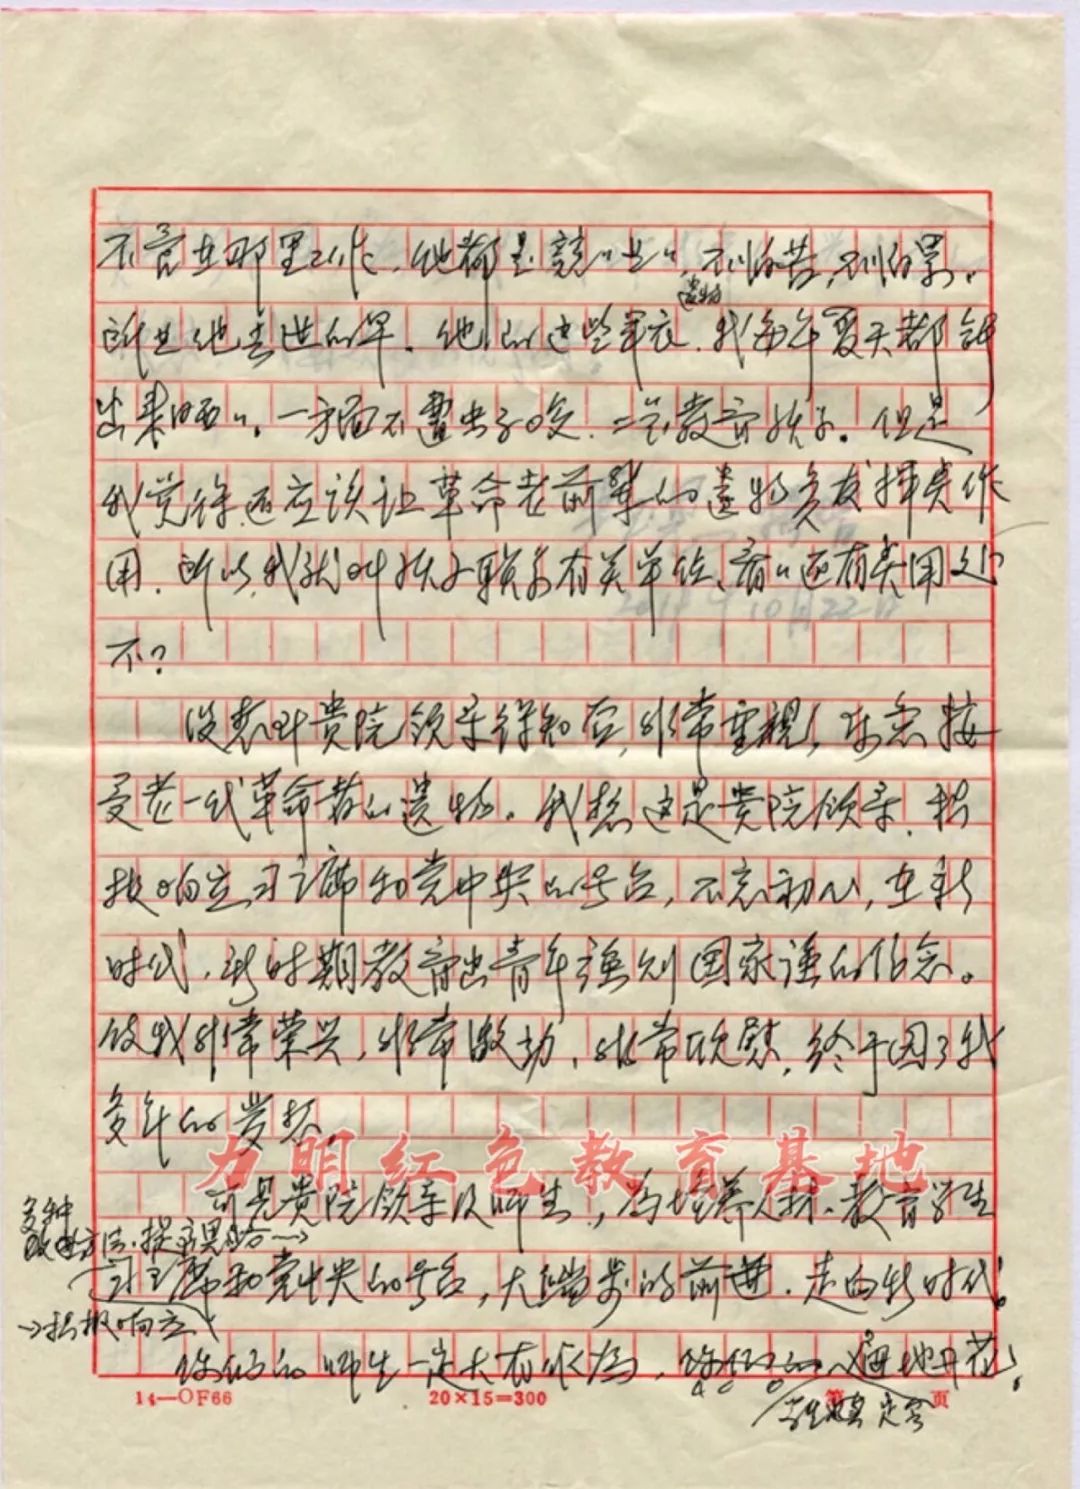 不管在那里工作，他都是兢"业"，不叫的苦，不叫的累。
所以他去世的早。他的这些军衣遗物，我每年夏天都拿
出来晒"。一方面不遭虫子咬，二是教育孩子。但是
我觉得还应该让革命老前辈的遗物发挥点作
用，所以我就叫孩子联系有关单位，看"还有点用处
不？
没想到贵院领导得知后，非常重视，愿意接
受老一代革命者的遗物。我想这是贵院领导，积
极响应习主席和党中央的号召，不忘初心，在新
时代，新时期教育出青年强则国家强的信念。
使我非常荣兴，非常激动，非常欣慰，终于圆了我
多年的梦想
力明红色教育基地
可见贵院领导及师生，为培养人材，教育学生
多种
教育方法，提高果
习主席和党中央的号召，大踏步的前进，走向新时代。
→积极响应
你们的师生一定大有作为，你们的 遍地开花！
14—OF66
20×15=300
第 页